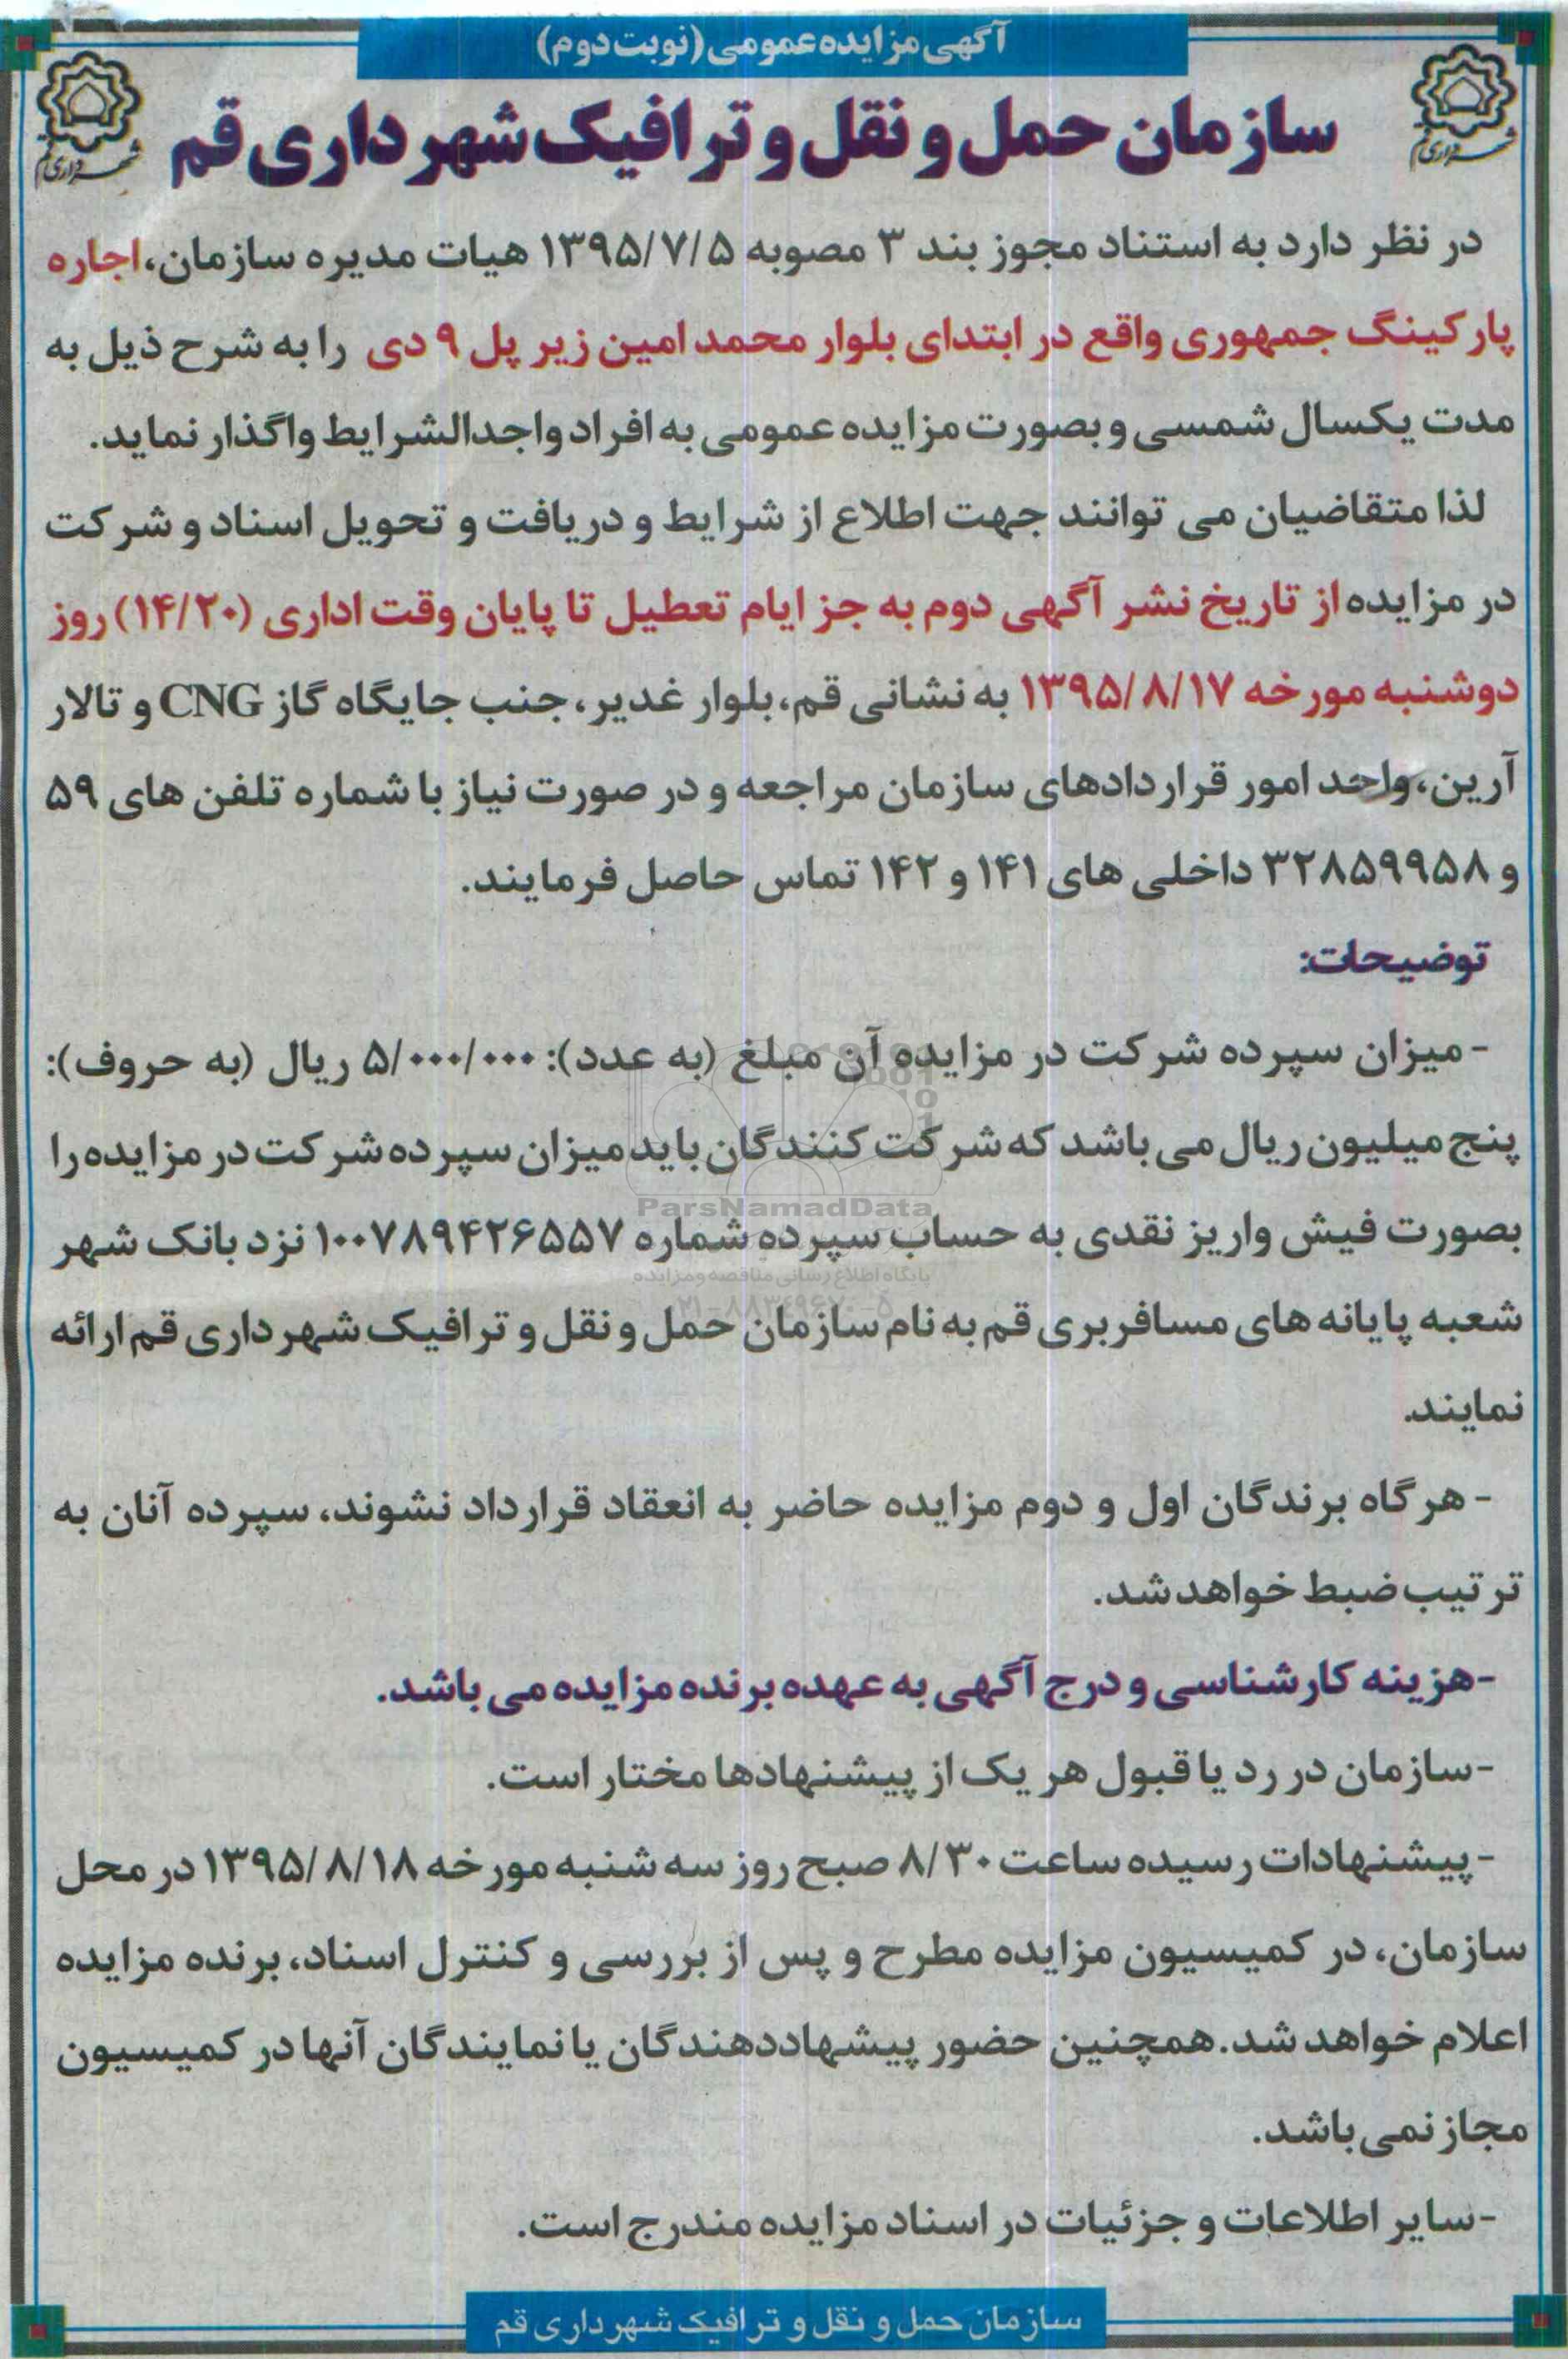 آگهی مزایده عمومی (نوبت دوم)
سازمان حمل و نقل و ترافیک شهرداری قم
شهرداری قم
شهرداری قم
در نظر دارد به استناد مجوز بند ۳ مصوبه ۱۳۹۵/۷/۵ هیات مدیره سازمان، اجاره
پارکینگ جمهوری واقع در ابتدای بلوار محمد امین زیر پل ۹ دی را به شرح ذیل به
مدت یکسال شمسی و بصورت مزایده عمومی به افراد واجدالشرایط واگذار نماید.
لذا متقاضیان می توانند جهت اطلاع از شرایط و دریافت و تحویل اسناد و شرکت
در مزایده از تاریخ نشر آگهی دوم به جز ایام تعطیل تا پایان وقت اداری (۱۴/۲۰) روز
دوشنبه مورخه ۱۳۹۵/۸/۱۷ به نشانی قم، بلوار غدیر، جنب جایگاه گاز CNG و تالار
آرین، واحد امور قراردادهای سازمان مراجعه و در صورت نیاز با شماره تلفن های ۵۹
و ۳۲۸۵۹۹۵۸ داخلی های ۱۴۱ و ۱۴۲ تماس حاصل فرمایند.
توضیحات:
- میزان سپرده شرکت در مزایده آن مبلغ (به عدد): ۵/۰۰۰/۰۰۰ ریال (به حروف):
پنج میلیون ریال می باشد که شرکت کنندگان باید میزان سپرده شرکت در مزایده را
ParsNamadData
بصورت فیش واریز نقدی به حساب سپرده شماره ۱۰۰۷۸۹۴۲۶۵۵۷ نزد بانک شهر
پایگاه اطلاع رسانی مناقصه و مزایده
۰۲۱-۸۸۳۴۹۶۷۰-۵
شعبه پایانه های مسافربری قم به نام سازمان حمل و نقل و ترافیک شهرداری قم ارائه
نمایند.
- هرگاه برندگان اول و دوم مزایده حاضر به انعقاد قرارداد نشوند، سپرده آنان به
ترتیب ضبط خواهد شد.
-هزینه کارشناسی و درج آگهی به عهده برنده مزایده می باشد.
-سازمان در رد یا قبول هر یک از پیشنهادها مختار است.
- پیشنهادات رسیده ساعت ۸/۳۰ صبح روز سه شنبه مورخه ۱۳۹۵/۸/۱۸ در محل
سازمان، در کمیسیون مزایده مطرح و پس از بررسی و کنترل اسناد، برنده مزایده
اعلام خواهد شد. همچنین حضور پیشهاددهندگان یا نمایندگان آنها در کمیسیون
مجاز نمی باشد.
-سایر اطلاعات و جزئیات در اسناد مزایده مندرج است.
سازمان حمل و نقل و ترافیک شهرداری قم